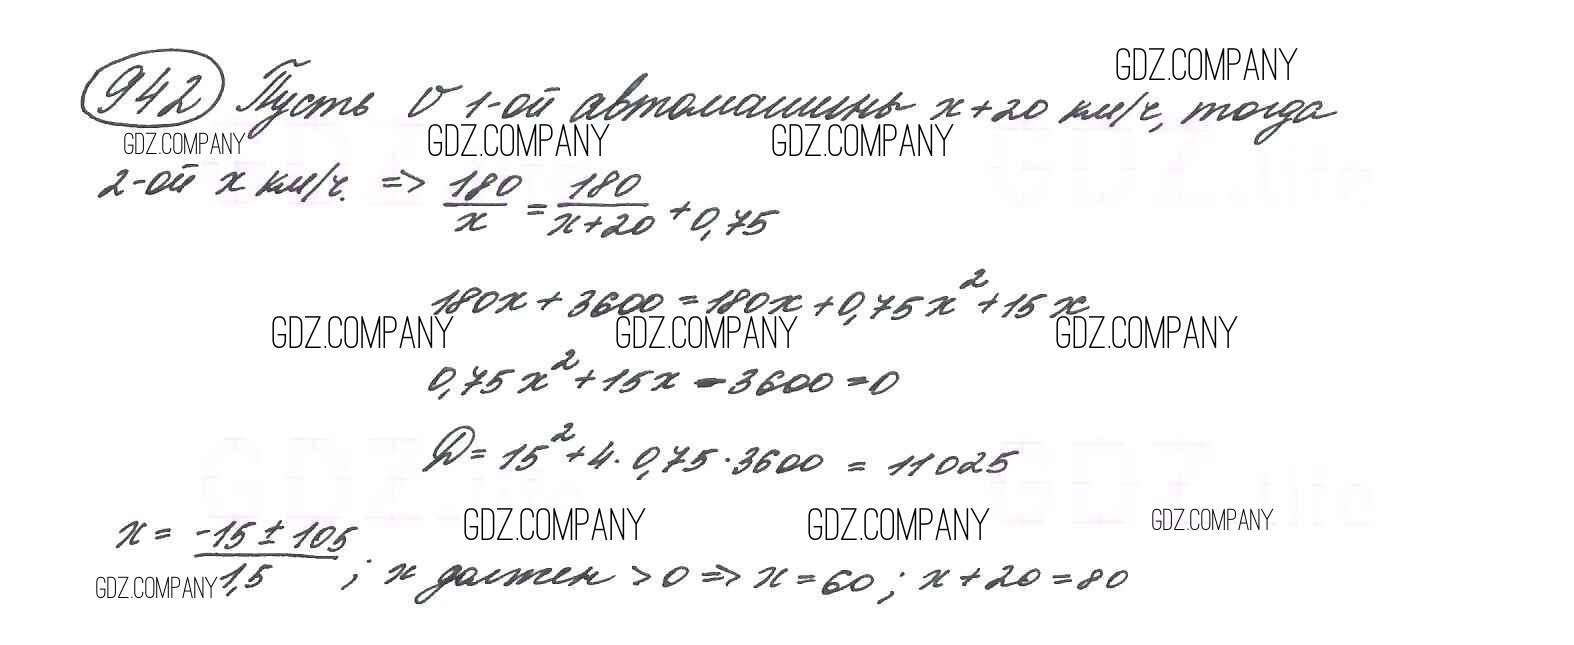 GDZ.COMPANY
942 Пусть v 1-ой автомашины x+20 км/ч, тогда
GDZ.COMPANY GDZ.COMPANY GDZ.COMPANY
2-ой x км/ч. => 180/x = 180/(x+20) + 0,75
180x + 3600 = 180x + 0,75x² + 15x
GDZ.COMPANY GDZ.COMPANY GDZ.COMPANY
0,75x² + 15x - 3600 = 0
D = 15² + 4 · 0,75 · 3600 = 11025
GDZ.COMPANY GDZ.COMPANY GDZ.COMPANY
x = (-15 ± 105)/1,5 ; x должен > 0 => x = 60; x + 20 = 80
GDZ.COMPANY